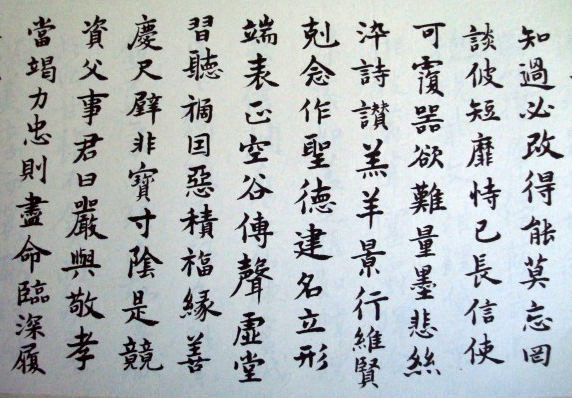 知過必改得能莫忘罔
談彼短靡恃己長信使
可覆器欲難量墨悲絲
染詩讚羔羊景行維賢
剋念作聖德建名立形
端表正空谷傳聲虛堂
習聽禍因惡積福緣善
慶尺璧非寶寸陰是競
資父事君曰嚴與敬孝
當竭力忠則盡命臨深履